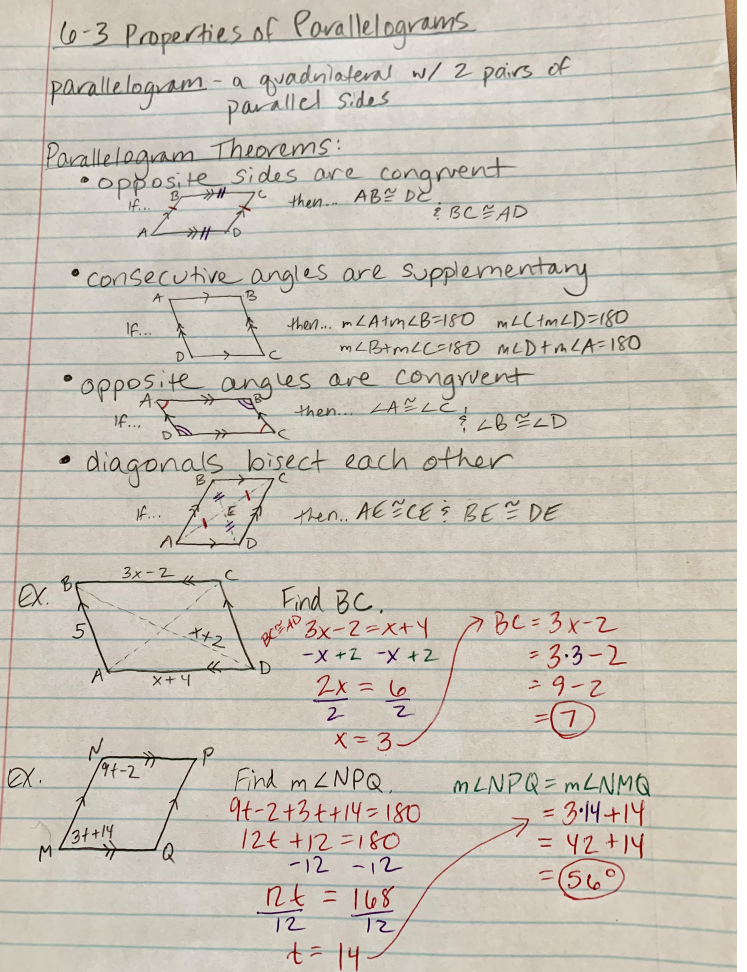 6-3 Properties of Parallelograms
parallelogram - a quadrilateral w/ 2 pairs of
parallel sides
Parallelogram Theorems:
• opposite sides are congruent
If... B C A D then... AB≅DC
& BC≅AD
• consecutive angles are supplementary
A B
If... then... m∠A+m∠B=180 m∠C+m∠D=180
D C m∠B+m∠C=180 m∠D+m∠A=180
• opposite angles are congruent
A B
If... then... ∠A≅∠C,
D C & ∠B≅∠D
• diagonals bisect each other
B C
If... E then.. AE≅CE & BE≅DE
A D
Ex. B 3x-2 C
5 x+2
A x+4 D
Find BC.
BC≅AD 3x-2=x+4
-x+2 -x+2
2x = 6
2 2
x = 3
BC = 3x-2
= 3·3-2
= 9-2
= 7
Ex. N P
9t-2
3t+14
M Q
Find m∠NPQ.
9t-2+3t+14=180
12t+12=180
-12 -12
12t = 168
12 12
t = 14
m∠NPQ = m∠NMQ
= 3·14+14
= 42+14
= 56°